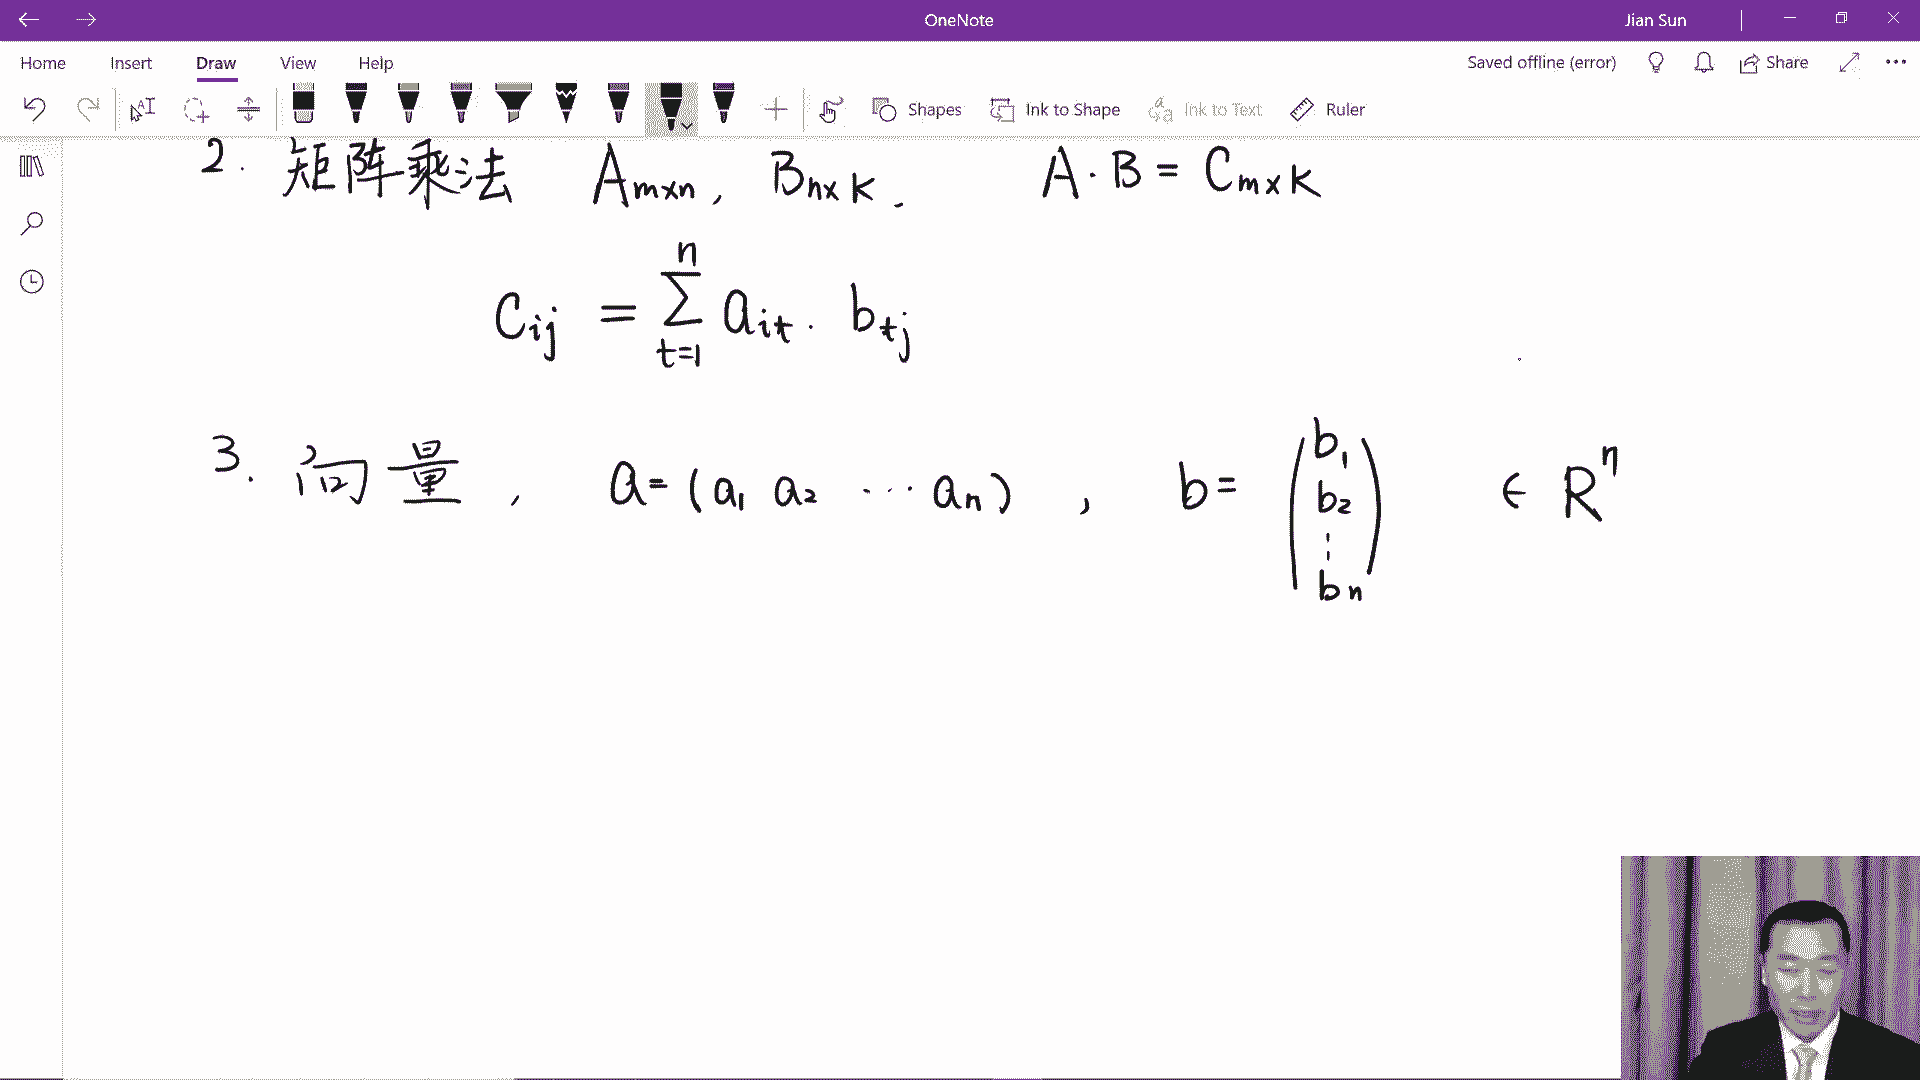 OneNote
Jian Sun
Home Insert Draw View Help
Saved offline (error) Share
Shapes Ink to Shape Ink to Text Ruler
2. 矩阵乘法 Amxn, Bnxk. A·B = Cmxk
Cij = n∑t=1 ait · btj
3. 向量, a=(a1 a2 ⋯ an), b= (b1 b2 ⋮ bn) ∈ Rn